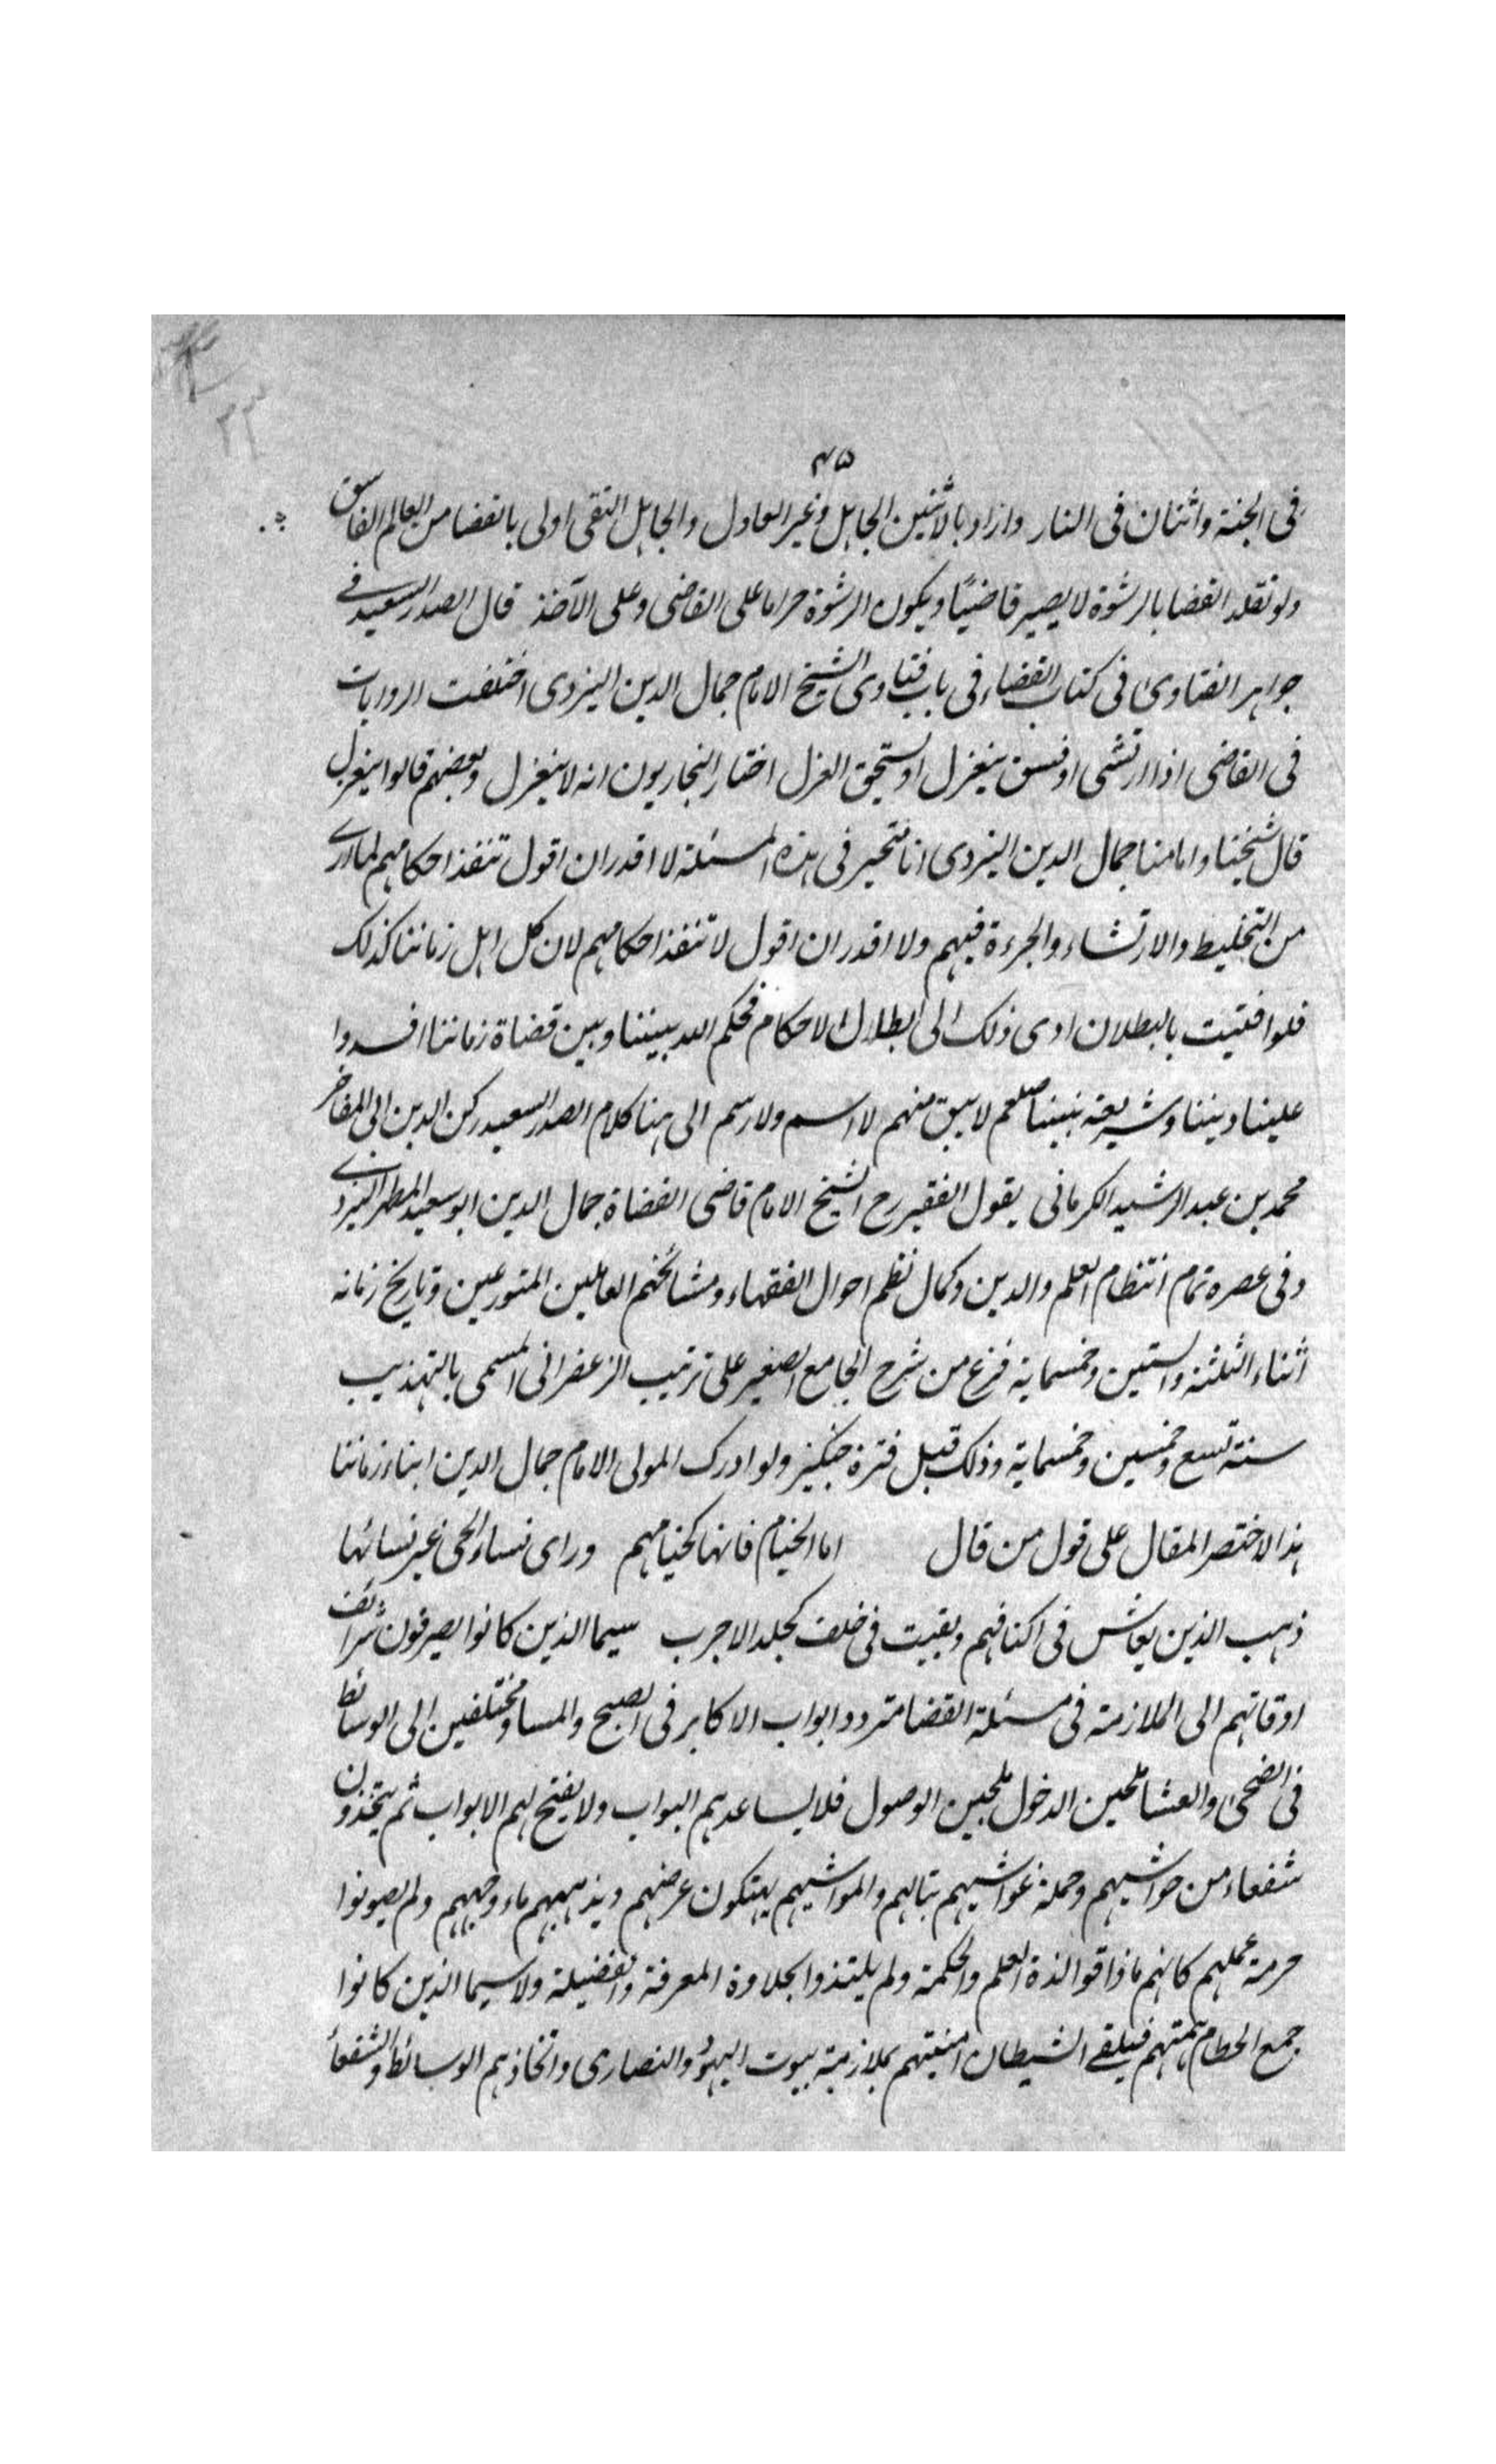 ٤٥
فى الجنة واثنان فى النار واراد بالاثنين الجاهل وغير العادل والجاهل التقى اولى بالقضا من العالم الفاسق
ولو تقلد القضا بالرشوة لا يصير قاضيًا ويكون الرشوة حراما على القاضى وعلى الآخذ قال الصدر السعيد فى
جواهر الفتاوى فى كتاب القضاء فى باب فتاوى الشيخ الامام جمال الدين اليزدى اختلفت الروايات
فى القاضى اذا ارتشى او فسق ينعزل او يستحق العزل اختار البخاريون انه لا ينعزل وبعضهم قالوا ينعزل
قال شيخنا وامامنا جمال الدين اليزدى انا متحير فى هذه المسئلة لا اقدر ان اقول تنفذ احكامهم لما ارى
من التخليط والارتشاء والجرءة فيهم ولا اقدر ان اقول لا تنفذ احكامهم لان كل اهل زماننا كذلك
فلو افتيت بالبطلان ادى ذلك الى ابطال الاحكام فحكم الله بيننا وبين قضاة زماننا افسدوا
علينا ديننا وشريعة نبينا صلعم لا يبق منهم لا اسم ولا رسم الى هنا كلام الصدر السعيد ركن الدين ابى المفاخر
محمد بن عبد الرشيد الكرمانى يقول الفقير رح الشيخ الامام قاضى القضاة جمال الدين ابو سعيد المطهر اليزدى
وفى عصره تمام انتظام العلم والدين وكمال نظم احوال الفقهاء ومشائخهم العاملين المتورعين وتاريخ زمانه
اثناء الثلثة والستين وخمسماية فرغ من شرح الجامع الصغير على ترتيب الزعفرانى المسمى بالتهذيب
سنة تسع وخمسين وخمسماية وذلك قبل فترة جنكيز ولو ادرك المولى الامام جمال الدين ابناء زماننا
هذا لاختصر المقال على قول من قال اما الخيام فانها كخيامهم ورارى نساء الحى غير نسائها
ذهب الذين يعاش فى اكنافهم وبقيت فى خلف كجلد الاجرب سيما الذين كانوا يصرفون شرائف
اوقاتهم الى الملازمة فى مسئلة القضا متردد ابواب الاكابر فى الصبح والمسا ومختلفين الى الوسائط
فى الضحى والعشا ملحين الدخول ملحين الوصول فلا يساعدهم البواب ولا يفتح لهم الابواب ثم يتخذون
شفعاء من حواشيهم وحملة غواشيهم يهتكون عرضهم ويذهبهم ماء وجههم ولم يصونوا
حرمة علمهم كانهم ما ذاقوا لذة العلم والحكمة ولم يلتذوا بحلاوة المعرفة والفضيلة ولا سيما الذين كانوا
جمع الحطام همتهم فيلقى الشيطان امنيتهم بملازمة بيوت اليهود والنصارى واتخاذهم الوسائط والشفعاء